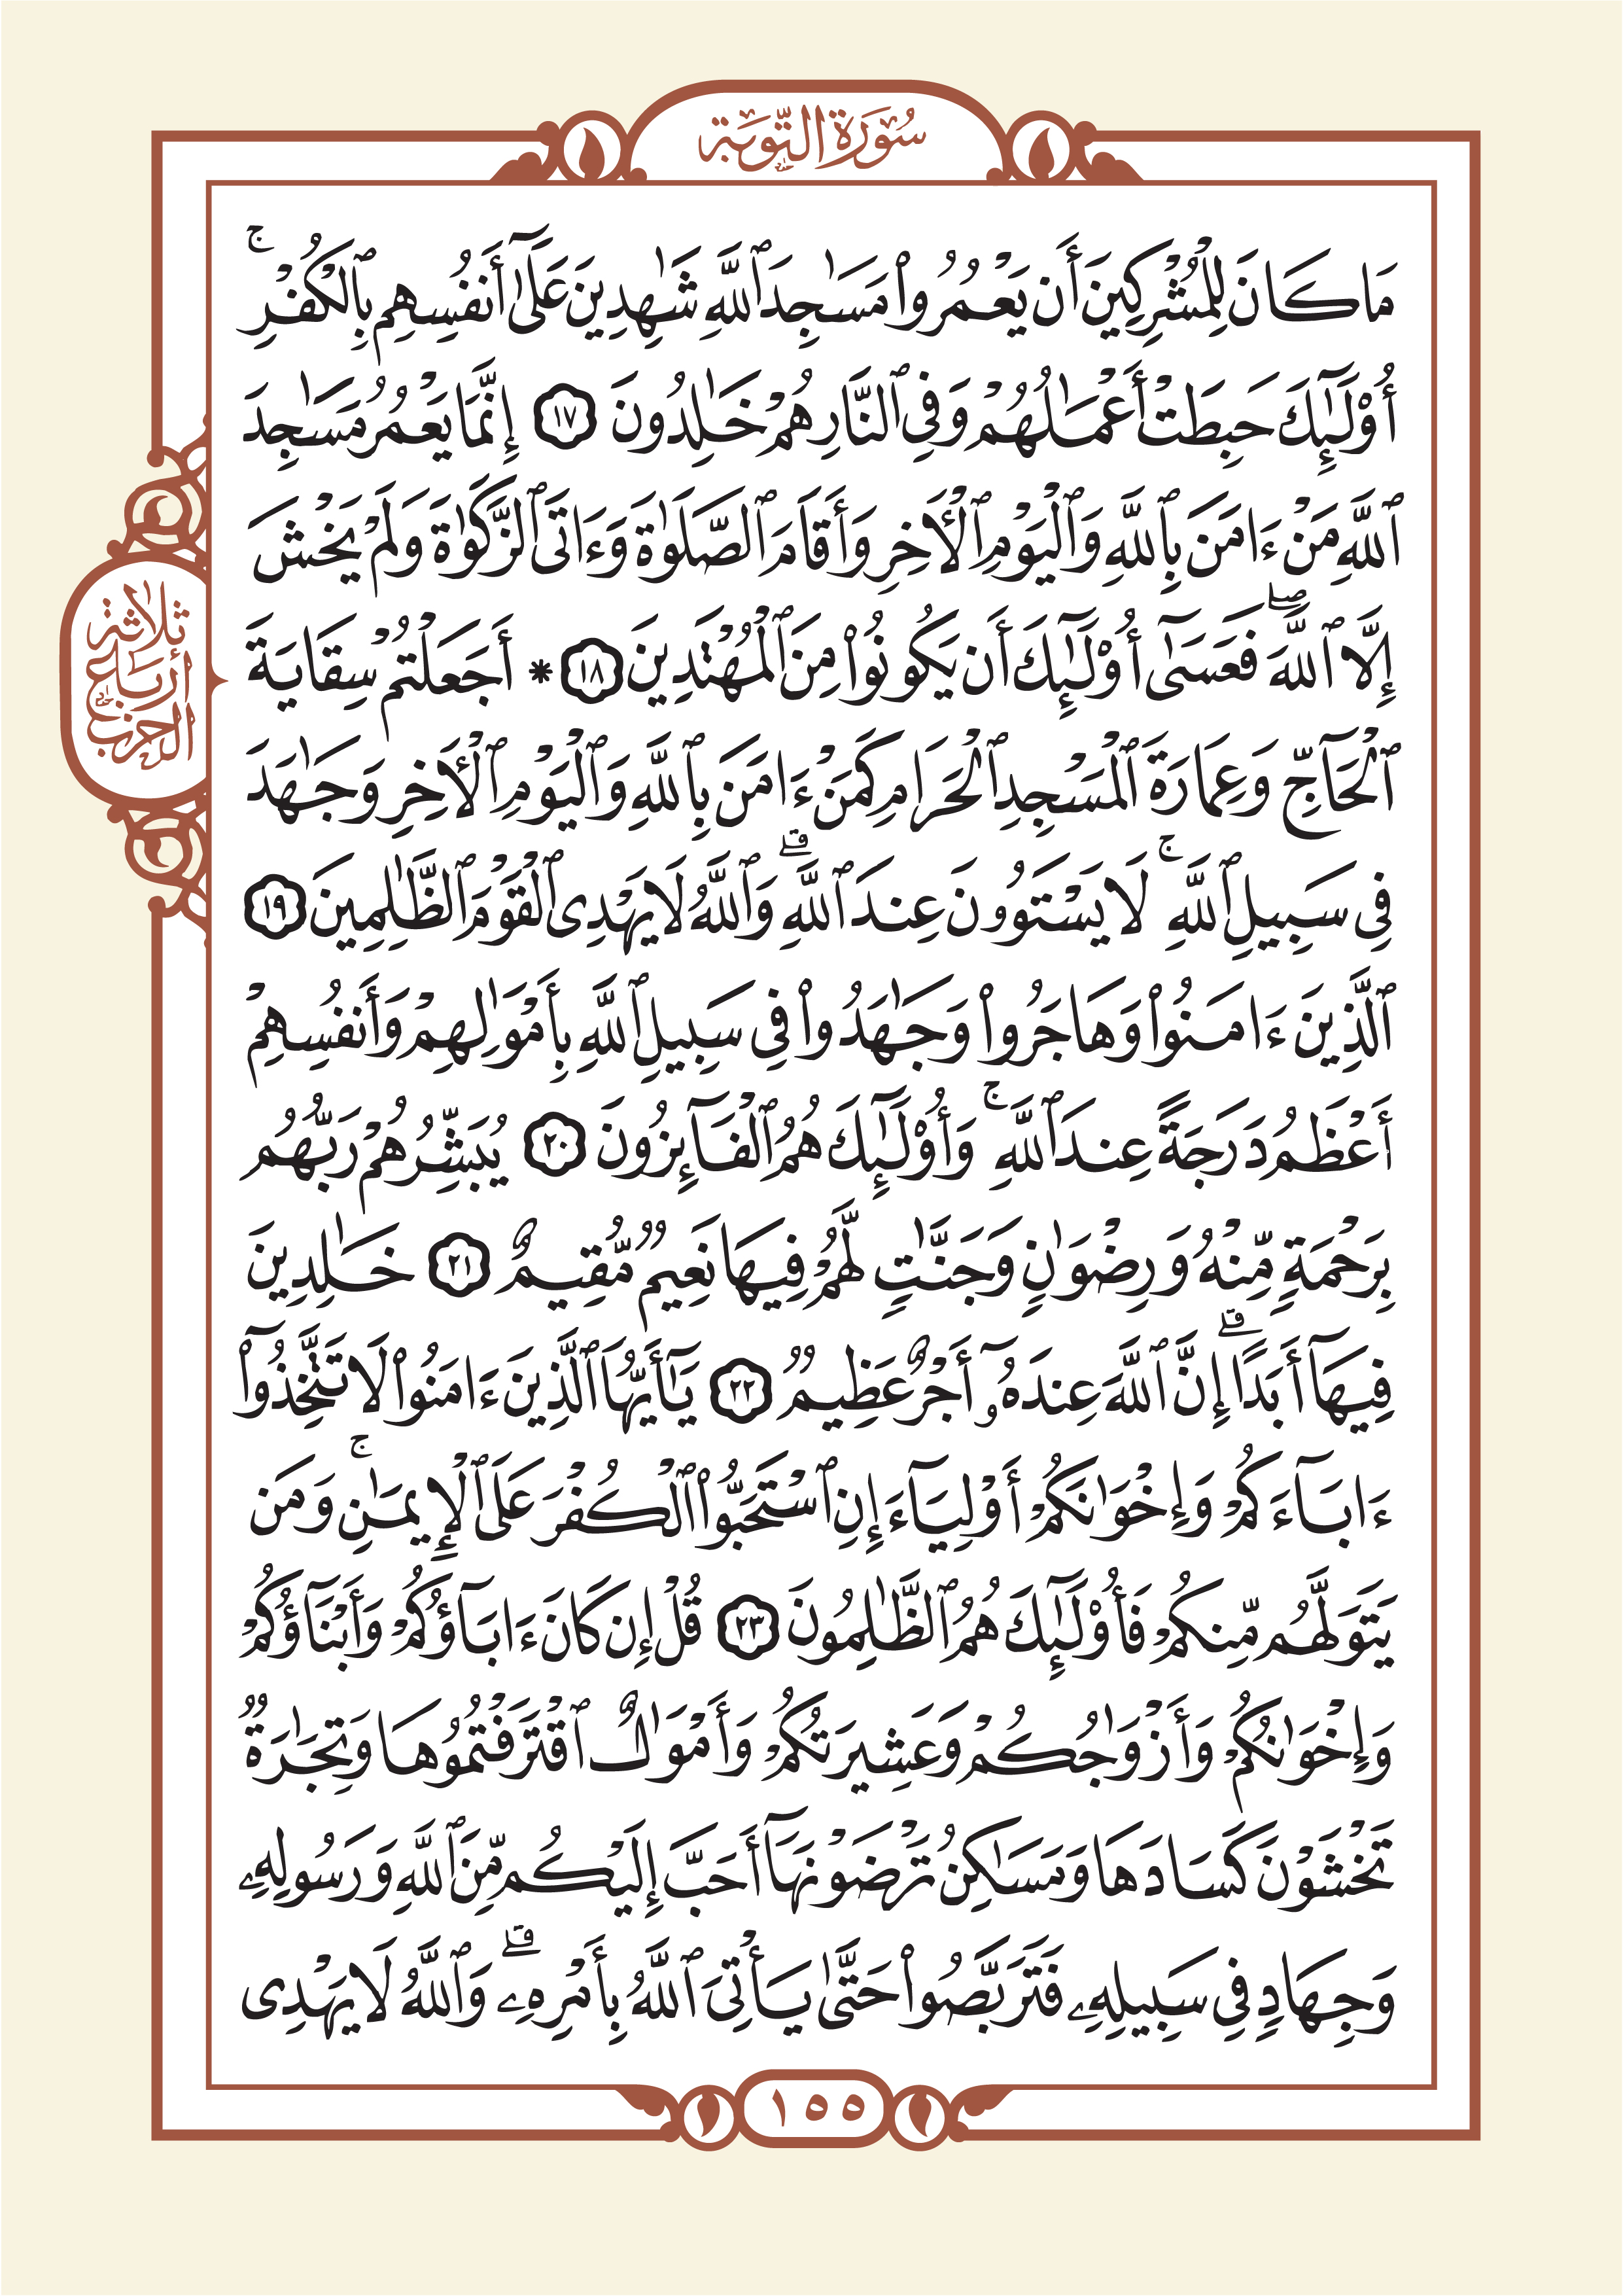 سُورَةُ التَّوبَةِ
مَا كَانَ لِلْمُشْرِكِينَ أَن يَعْمُرُوا۟ مَسَٰجِدَ ٱللَّهِ شَٰهِدِينَ عَلَىٰٓ أَنفُسِهِم بِٱلْكُفْرِ ۚ
أُو۟لَٰٓئِكَ حَبِطَتْ أَعْمَٰلُهُمْ وَفِى ٱلنَّارِ هُمْ خَٰلِدُونَ ١٧ إِنَّمَا يَعْمُرُ مَسَٰجِدَ
ٱللَّهِ مَنْ ءَامَنَ بِٱللَّهِ وَٱلْيَوْمِ ٱلْأَخِرِ وَأَقَامَ ٱلصَّلَوٰةَ وَءَاتَى ٱلزَّكَوٰةَ وَلَمْ يَخْشَ
إِلَّا ٱللَّهَ ۖ فَعَسَىٰٓ أُو۟لَٰٓئِكَ أَن يَكُونُوا۟ مِنَ ٱلْمُهْتَدِينَ ١٨ * أَجَعَلْتُمْ سِقَايَةَ
ٱلْحَآجِّ وَعِمَارَةَ ٱلْمَسْجِدِ ٱلْحَرَامِ كَمَنْ ءَامَنَ بِٱللَّهِ وَٱلْيَوْمِ ٱلْأَخِرِ وَجَٰهَدَ
فِى سَبِيلِ ٱللَّهِ ۚ لَا يَسْتَوُۥنَ عِندَ ٱللَّهِ ۗ وَٱللَّهُ لَا يَهْدِى ٱلْقَوْمَ ٱلظَّٰلِمِينَ ١٩
ٱلَّذِينَ ءَامَنُوا۟ وَهَاجَرُوا۟ وَجَٰهَدُوا۟ فِى سَبِيلِ ٱللَّهِ بِأَمْوَٰلِهِمْ وَأَنفُسِهِمْ
أَعْظَمُ دَرَجَةً عِندَ ٱللَّهِ ۚ وَأُو۟لَٰٓئِكَ هُمُ ٱلْفَآئِزُونَ ٢٠ يُبَشِّرُهُمْ رَبُّهُم
بِرَحْمَةٍ مِّنْهُ وَرِضْوَٰنٍ وَجَنَّٰتٍ لَّهُمْ فِيهَا نَعِيمٌ مُّقِيمٌ ٢١ خَٰلِدِينَ
فِيهَآ أَبَدًا ۗ إِنَّ ٱللَّهَ عِندَهُۥٓ أَجْرٌ عَظِيمٌ ٢٢ يَٰٓأَيُّهَا ٱلَّذِينَ ءَامَنُوا۟ لَا تَتَّخِذُوٓا۟
ءَابَآءَكُمْ وَإِخْوَٰنَكُمْ أَوْلِيَآءَ إِنِ ٱسْتَحَبُّوا۟ ٱلْكُفْرَ عَلَى ٱلْإِيمَٰنِ ۚ وَمَن
يَتَوَلَّهُم مِّنكُمْ فَأُو۟لَٰٓئِكَ هُمُ ٱلظَّٰلِمُونَ ٢٣ قُلْ إِن كَانَ ءَابَآؤُكُمْ وَأَبْنَآؤُكُمْ
وَإِخْوَٰنُكُمْ وَأَزْوَٰجُكُمْ وَعَشِيرَتُكُمْ وَأَمْوَٰلٌ ٱقْتَرَفْتُمُوهَا وَتِجَٰرَةٌ
تَخْشَوْنَ كَسَادَهَا وَمَسَٰكِنُ تَرْضَوْنَهَآ أَحَبَّ إِلَيْكُم مِّنَ ٱللَّهِ وَرَسُولِهِۦ
وَجِهَادٍ فِى سَبِيلِهِۦ فَتَرَبَّصُوا۟ حَتَّىٰ يَأْتِىَ ٱللَّهُ بِأَمْرِهِۦ ۗ وَٱللَّهُ لَا يَهْدِى
ثلاثة
أرباع
الحزب
١٥٥